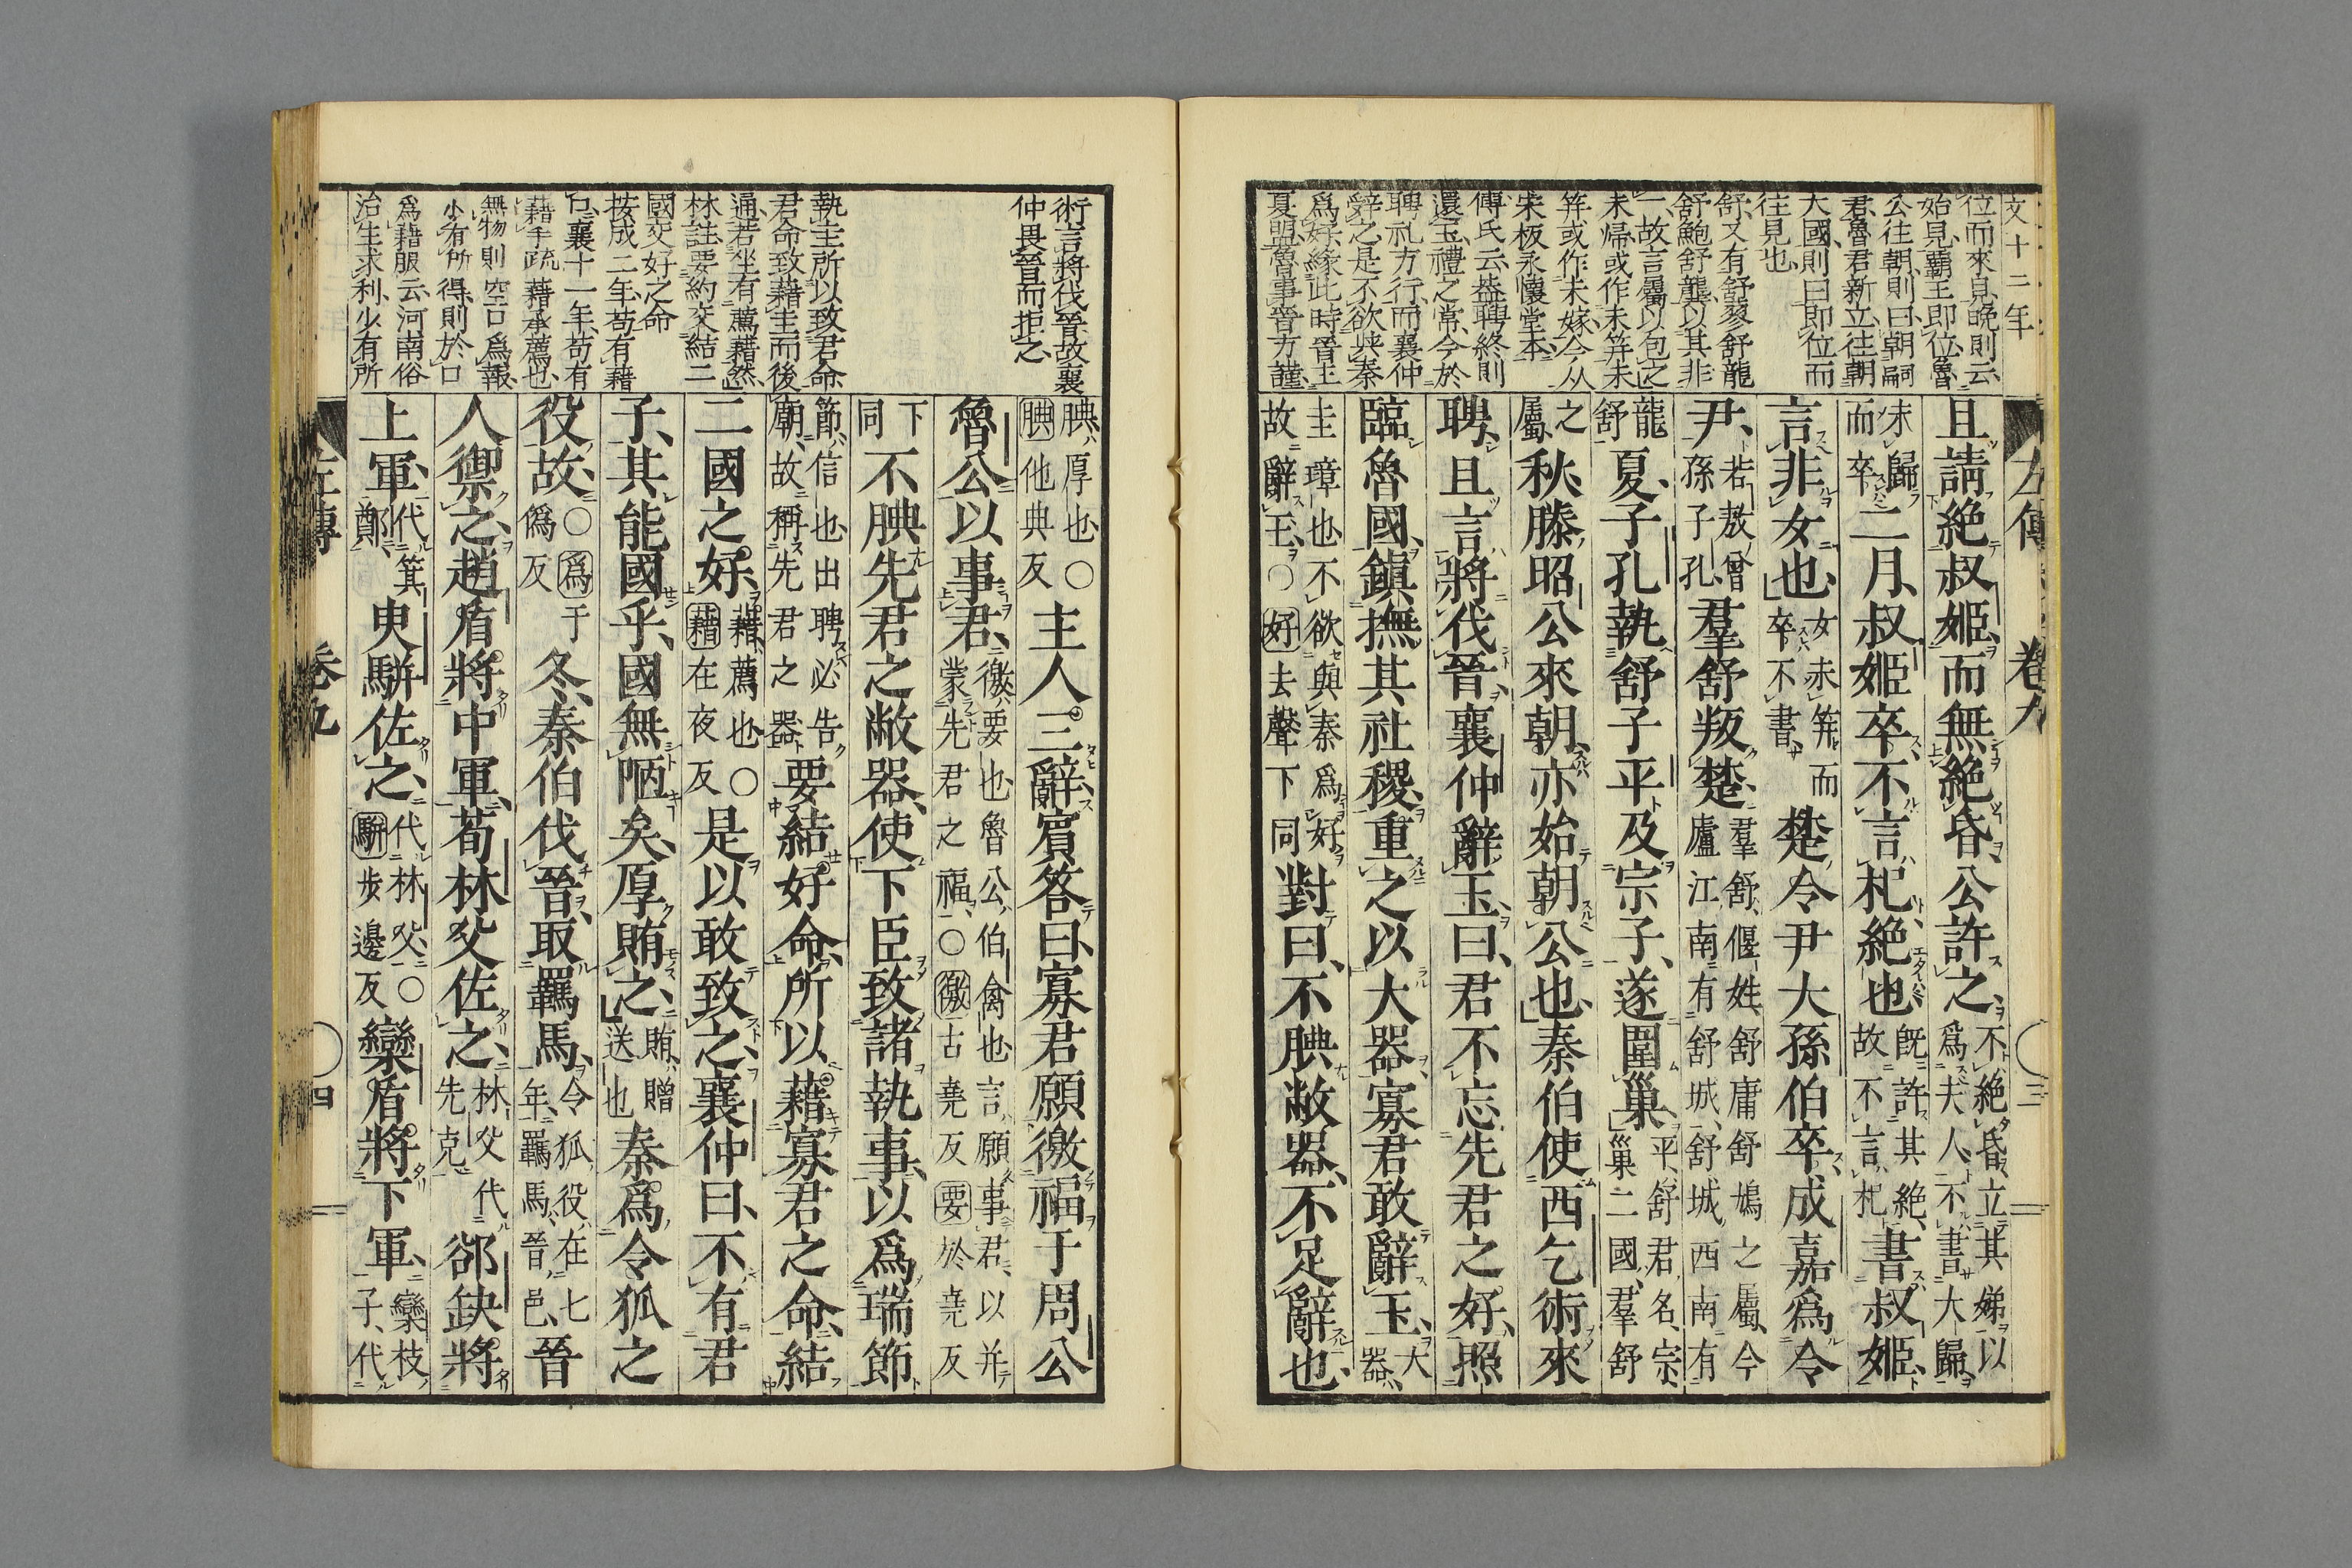 文十二年
位而來見晩則云
始見霸王即位魯
公往朝則曰朝嗣
君魯君新立往朝
大國則曰即位而
往見也
舒又有舒蓼舒龍
舒鮑舒龔以其非
一故言屬以包之
未帰或作未笄未
笄或作未嫁今从
宋板永懐堂本
傳氏云蓋聘終則
還玉禮之常今於
聘礼方行而襄仲
辭之是不欲與秦
爲好縁此時晉主
夏盟魯事晉方謹
左傳 卷九 三
且請絶叔姬而無絶昏公許之不絶昏立其娣以爲夫人不書大歸
未歸而卒二月叔姬卒不言杞絶也既許其絶故不言杞書叔姬
言非女也女未笄而卒不書楚令尹大孫伯卒成嘉爲令
尹若敖曾孫子孔羣舒叛楚羣舒偃姓舒庸舒鳩之屬今廬江南有舒城舒城西南有
龍舒夏子孔執舒子平及宗子遂圍巢平舒君名宗巢二國羣舒
之屬秋滕昭公來朝亦始朝公也秦伯使西乞術來
聘且言將伐晉襄仲辭玉曰君不忘先君之好照
臨魯國鎮撫其社稷重之以大器寡君敢辭玉大器
圭璋也不欲與秦爲好故辭玉○好去聲下同對曰不腆敝器不足辭也
術言將伐晉故襄
仲畏晉而拒之
執主所以致君命
君命致藉主而後
通若坐有薦藉然
林註要約交結二
國交好之命
按成二年苟有藉
口襄十一年苟有
藉手疏藉承薦也
無物則空口爲報
少有所得則於口
爲藉服云河南俗
治生求利少有所
腆厚也○腆他典反主人三辭賓答曰寡君願徼福于周公
魯公以事君徼要也魯公伯禽也言願事君以并蒙先君之福○徼古堯反要於堯反
下同不腆先君之敝器使下臣致諸執事以爲瑞節
節信也出聘必告廟故稱先君之器要結好命所以藉寡君之命結
二國之好藉薦也○藉在夜反是以敢致之襄仲曰不有君
子其能國乎國無陋矣厚賄之賄贈送也秦爲令狐之
役故○爲于僞反冬秦伯伐晉取羈馬令狐役在七年羈馬晉邑晉
人禦之趙盾將中軍荀林父佐之林父代先克郤缺將
上軍代箕鄭臾駢佐之代林父○駢步邊反欒盾將下軍欒枝子代
左傳 卷九 四